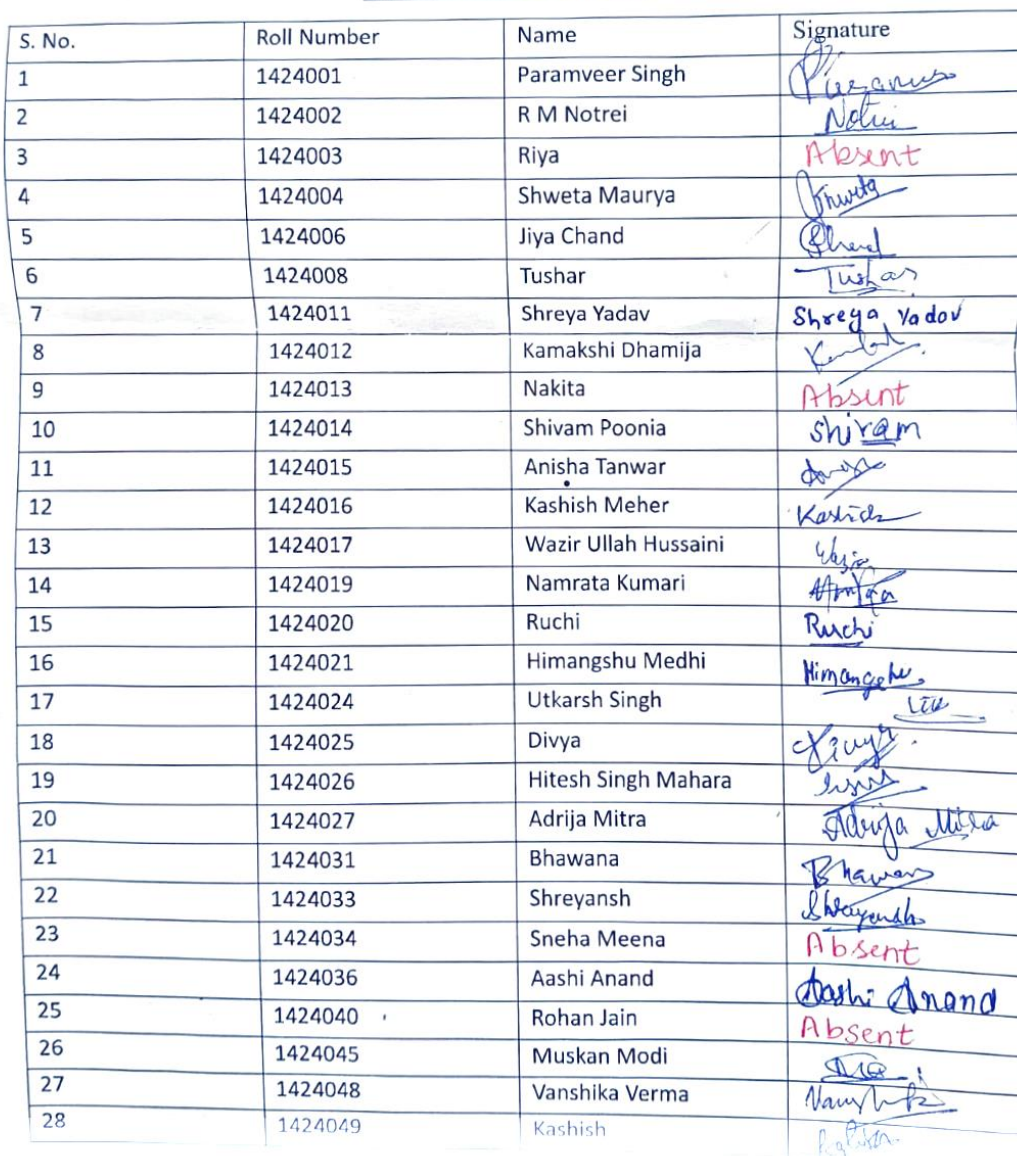 S. No. Roll Number Name Signature
1 1424001 Paramveer Singh
2 1424002 R M Notrei Notrei
3 1424003 Riya Absent
4 1424004 Shweta Maurya Shweta
5 1424006 Jiya Chand Chand
6 1424008 Tushar Tushar
7 1424011 Shreya Yadav Shreya Yadav
8 1424012 Kamakshi Dhamija
9 1424013 Nakita Absent
10 1424014 Shivam Poonia Shivam
11 1424015 Anisha Tanwar
12 1424016 Kashish Meher Kashish
13 1424017 Wazir Ullah Hussaini Wazir
14 1424019 Namrata Kumari
15 1424020 Ruchi Ruchi
16 1424021 Himangshu Medhi Himangshu
17 1424024 Utkarsh Singh
18 1424025 Divya Divya
19 1424026 Hitesh Singh Mahara
20 1424027 Adrija Mitra Adrija Mitra
21 1424031 Bhawana Bhawana
22 1424033 Shreyansh Shreyansh
23 1424034 Sneha Meena Absent
24 1424036 Aashi Anand Aashi Anand
25 1424040 Rohan Jain Absent
26 1424045 Muskan Modi
27 1424048 Vanshika Verma
28 1424049 Kashish